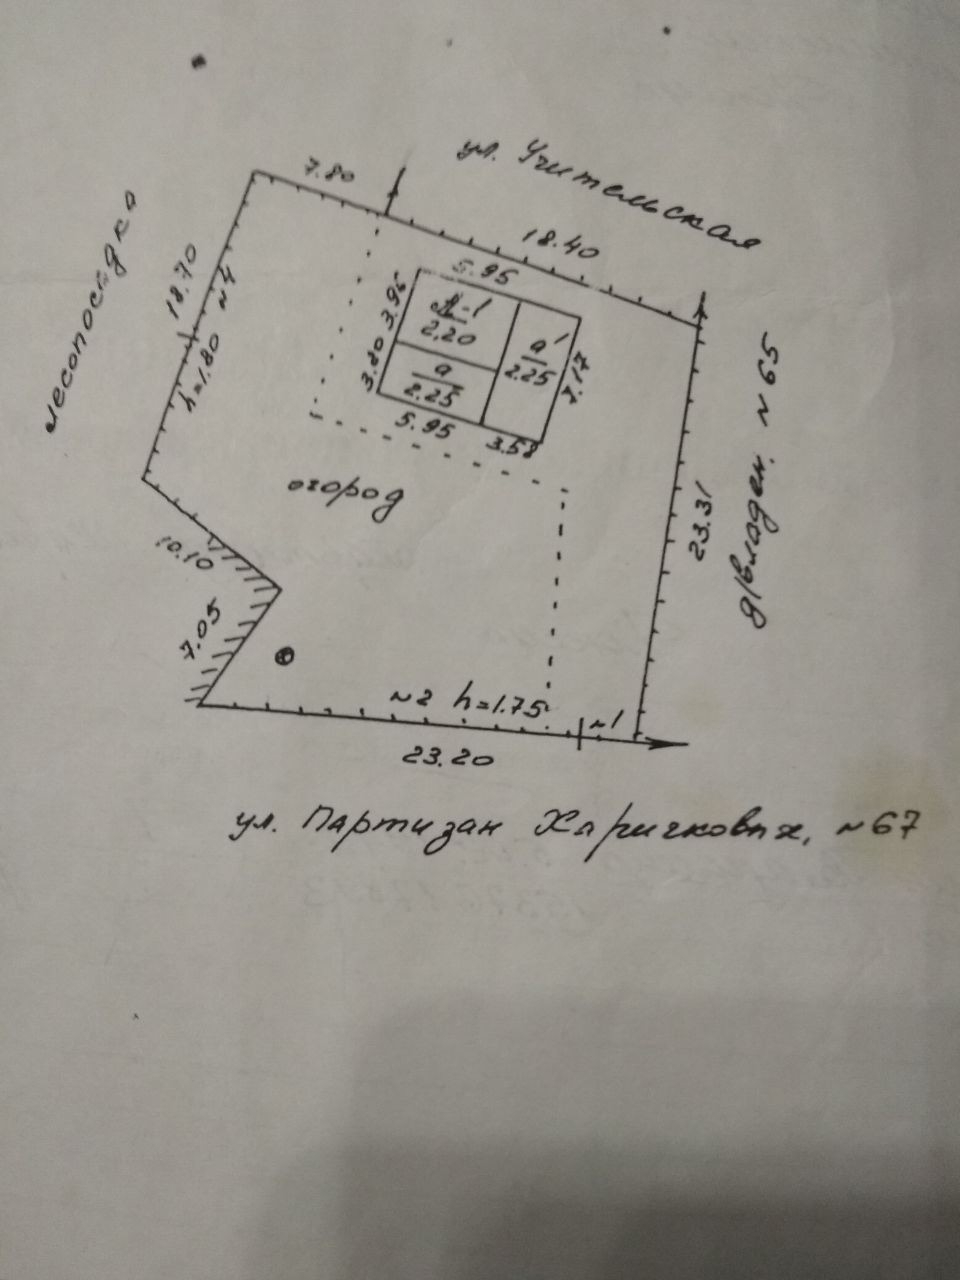 ул. Учительская
7.80
18.40
лесопосадка
18.70
№4
h=1.80
5.95
3.95
2.20
а'
2.25
7.17
3.80
а
2.25
5.95
3.58
д/владен. №65
23.31
огород
10.10
7.05
№2 h=1.75
№1
23.20
ул. Партизан Харичковых, №67